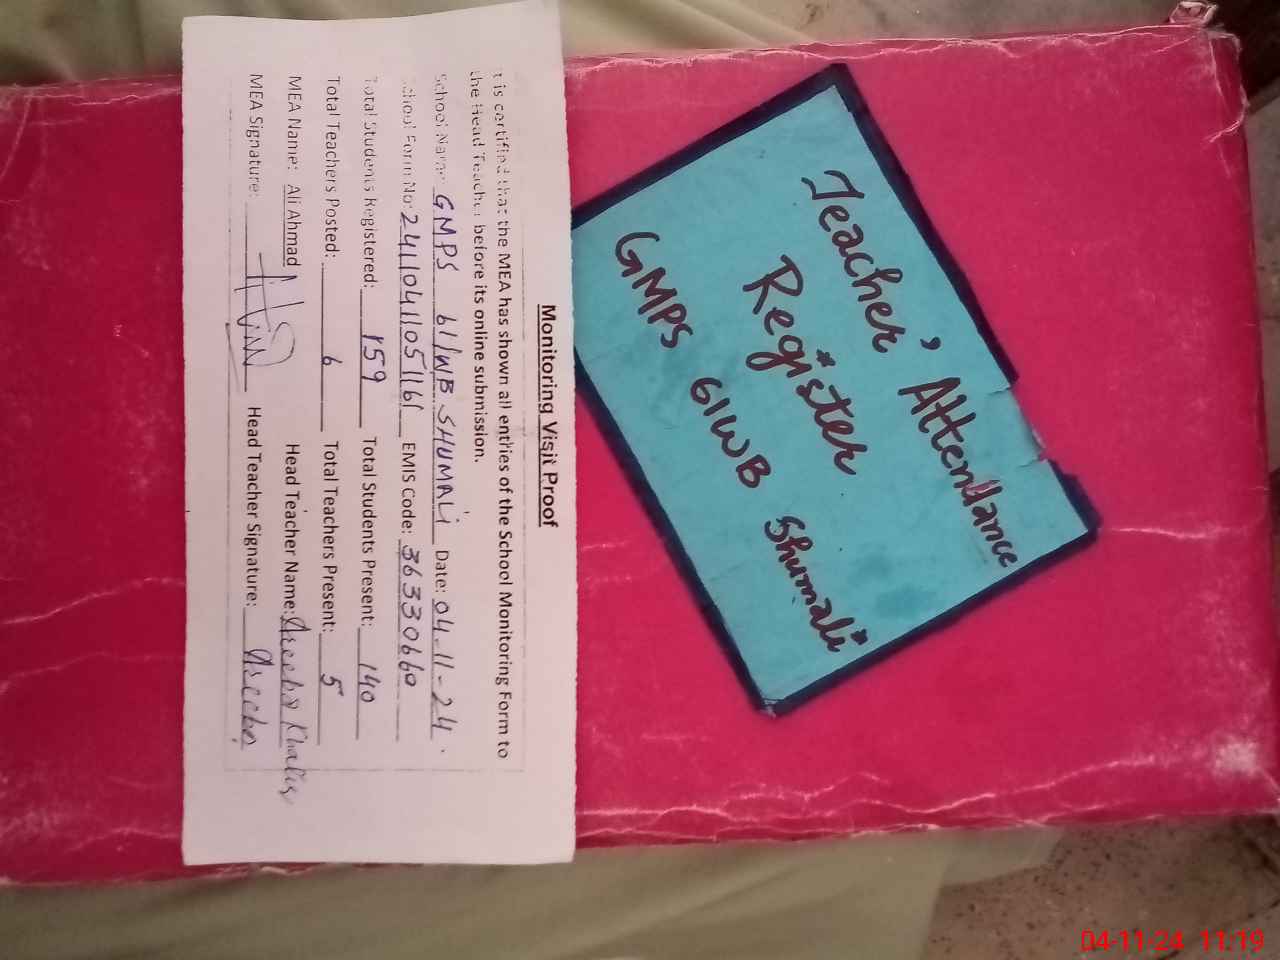 Monitoring Visit Proof
It is certified that the MEA has shown all entries of the School Monitoring Form to
the Head Teacher before its online submission.
School Name: GMPS 61/WB SHUMALI Date: 04-11-24.
School Form No: 24110411051161 EMIS Code: 36330660
Total Students Registered: 159 Total Students Present: 140
Total Teachers Posted: 6 Total Teachers Present: 5
MEA Name: Ali Ahmad Head Teacher Name: Areeba Khalid
MEA Signature: Head Teacher Signature: Areeba
Teacher' Attendance
Register
GMPS 61WB Shumali
04-11-24 11:19